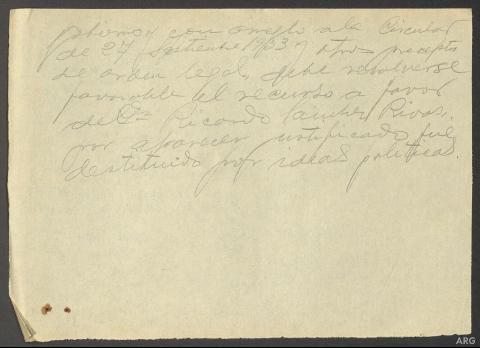 y con arreglo a la Circular
de 27 Septiembre 1933 y otros preceptos
de orden legal, debe resolverse
favorable el recurso a favor
de Dn Ricardo Rivas,
por aparecer justificado fue
destituido por ideas politicas.
ARG